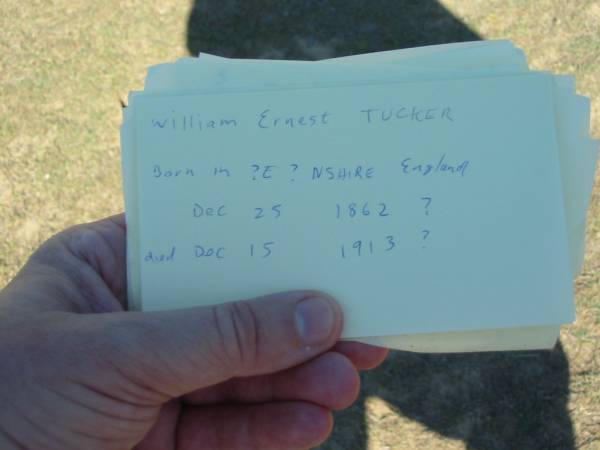 William Ernest TUCKER
Born in ?E ? NSHIRE England
Dec 25 1862 ?
died Dec 15 1913 ?